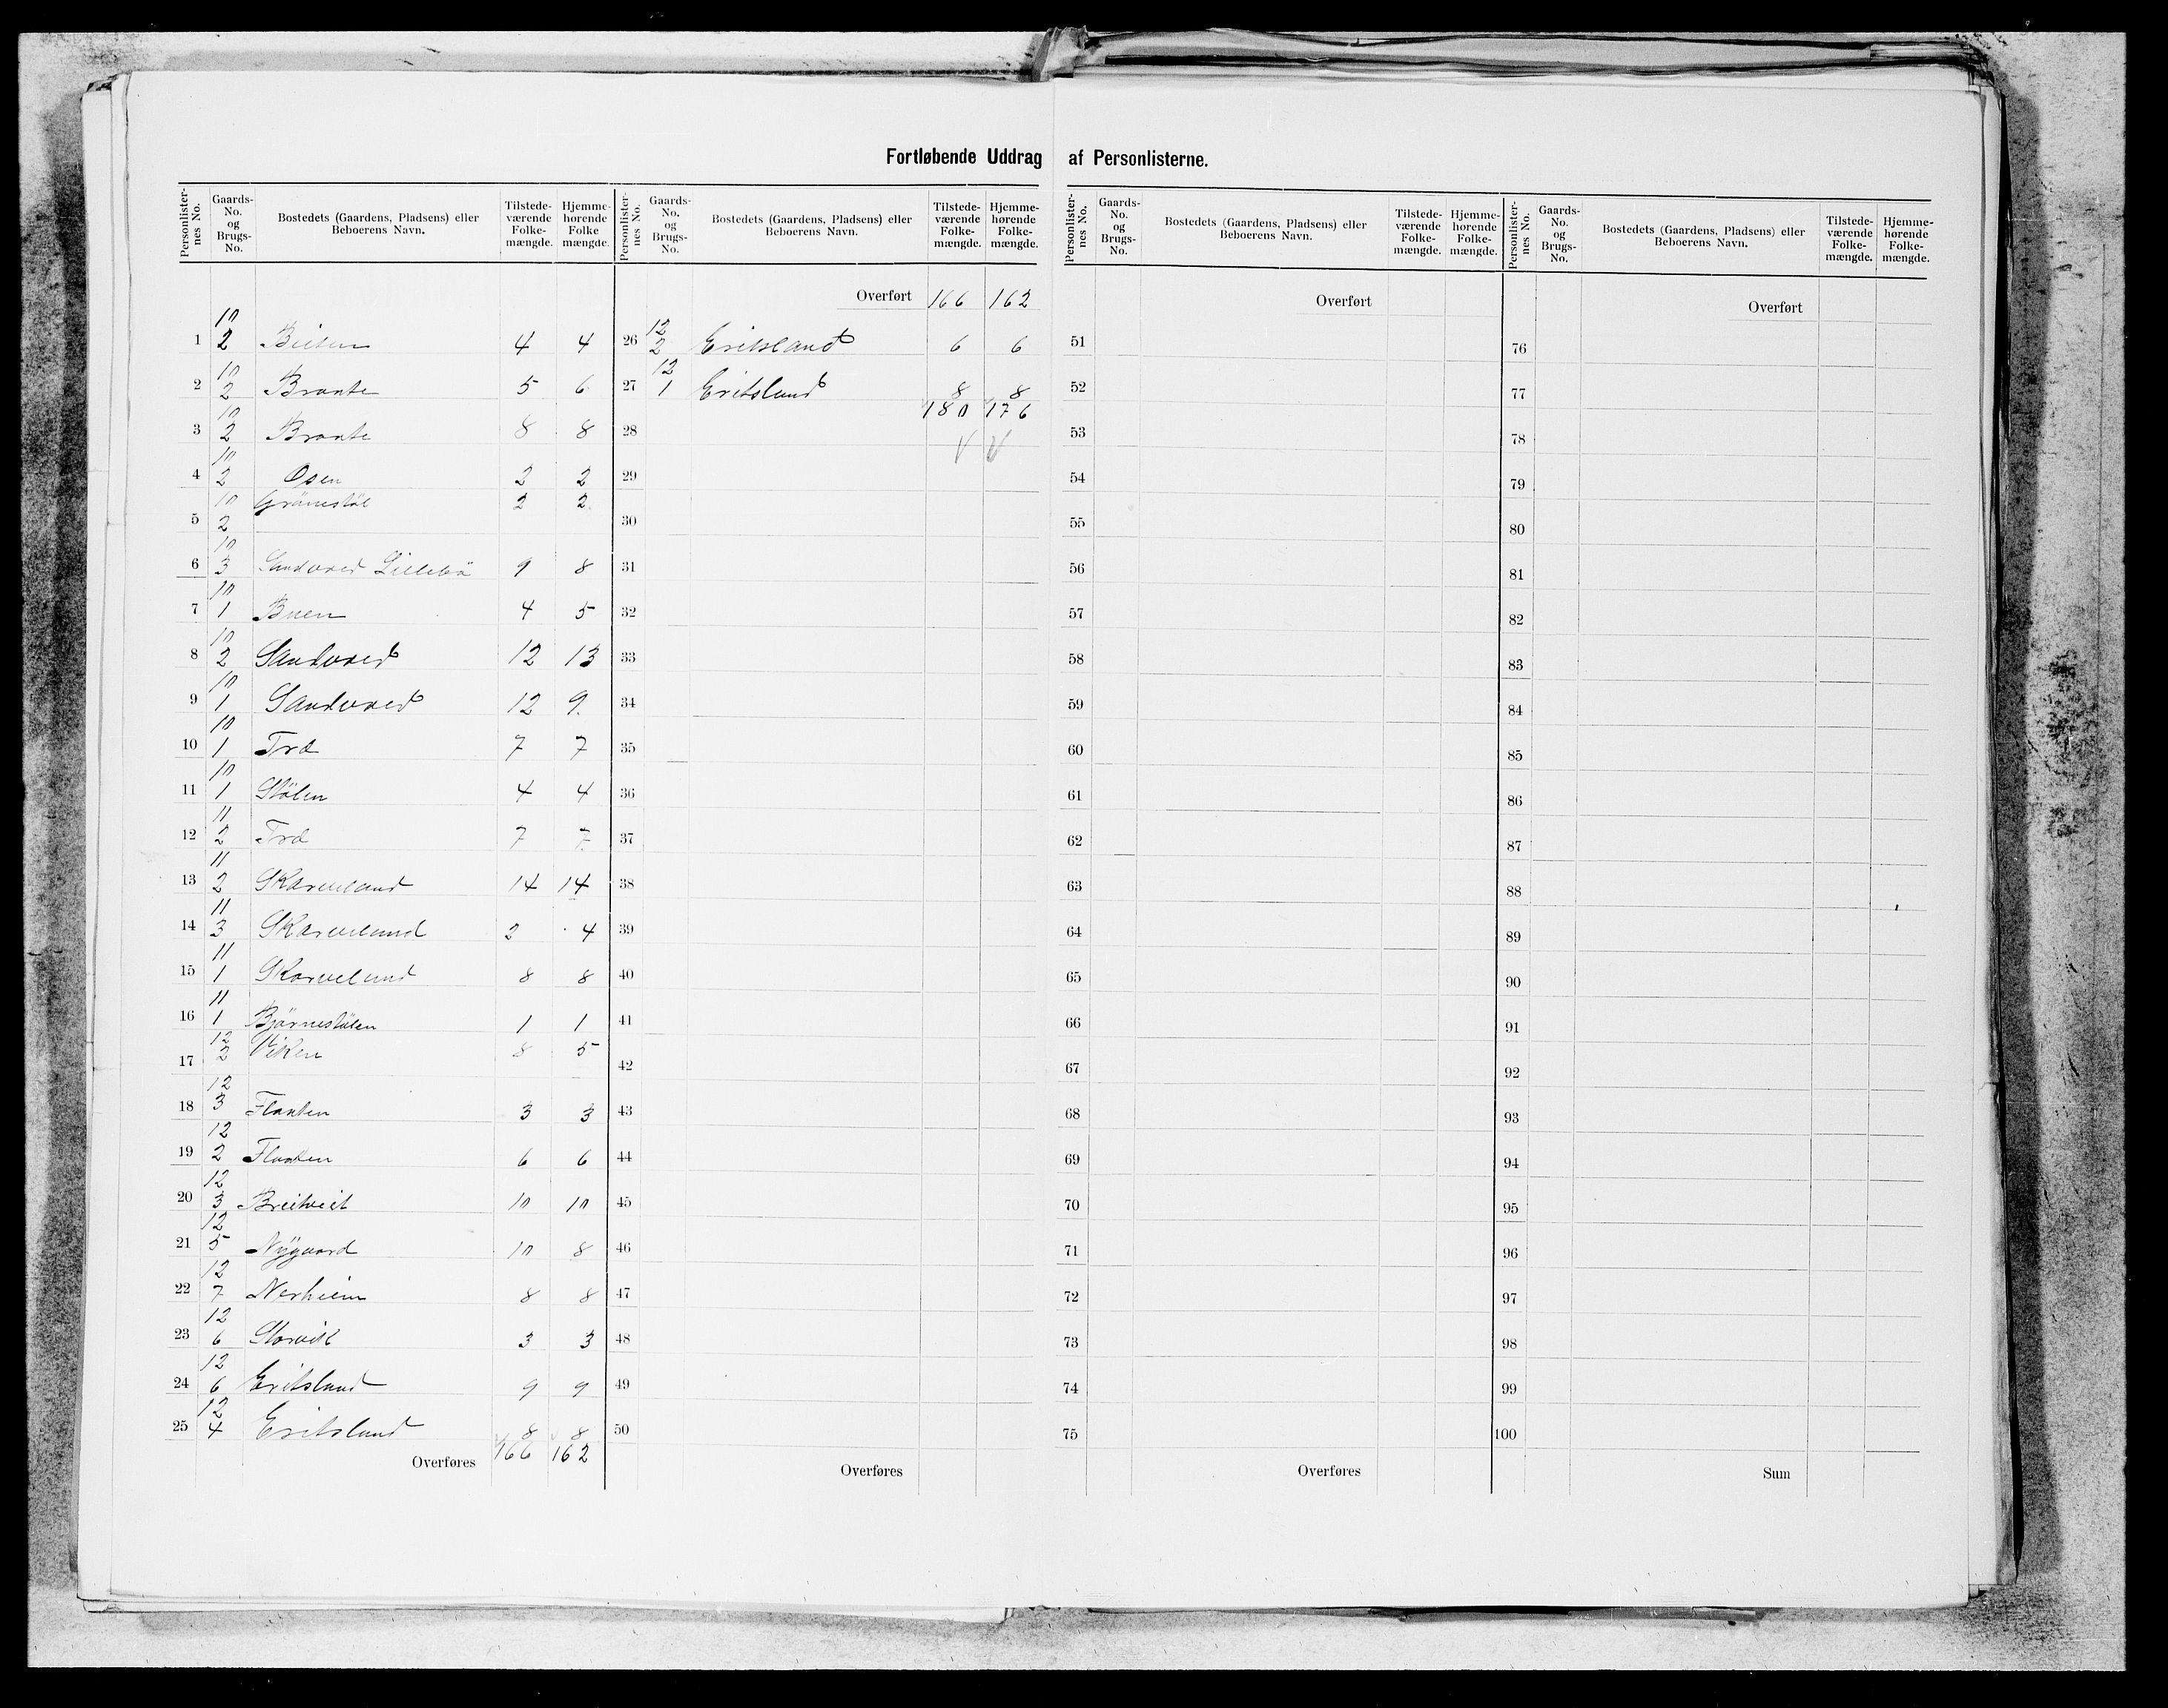 Fortløbende Uddrag af Personlisterne.
Personlister-nes No. | Gaards-No. og Brugs-No. | Bostedets (Gaardens, Pladsens) eller Beboerens Navn. | Tilstede-værende Folke-mængde. | Hjemme-hørende Folke mængde.
1 | 10 2 | | 4 | 4
2 | 10 2 | Braate | 5 | 6
3 | 10 2 | Braate | 8 | 8
4 | 10 2 | Osen | 2 | 2
5 | 10 2 | Grönestöl | 2 | 2
6 | 10 3 | Sandvred Lillebö | 9 | 8
7 | 10 1 | Buen | 4 | 5
8 | 10 2 | Sandvred | 12 | 13
9 | 10 1 | Sandvred | 12 | 9
10 | 10 1 | Træ | 7 | 7
11 | 10 1 | Stölen | 4 | 4
12 | 11 2 | Træ | 7 | 7
13 | 11 2 | Skarveland | 14 | 14
14 | 11 3 | Skarveland | 2 | 4
15 | 11 1 | Skarveland | 8 | 8
16 | 11 1 | Björnestölen | 1 | 1
17 | 12 2 | Viken | 8 | 5
18 | 12 3 | Flaaten | 3 | 3
19 | 12 2 | Flaaten | 6 | 6
20 | 12 3 | Breitveit | 10 | 10
21 | 12 5 | Nygaard | 10 | 8
22 | 12 7 | Nerheim | 8 | 8
23 | 12 6 | Storvik | 3 | 3
24 | 12 6 | Eritsland | 9 | 9
25 | 12 4 | Eritsland | 8 | 8
Overføres 166 | 162
Personlister-nes No. | Gaards-No. og Brugs-No. | Bostedets (Gaardens, Pladsens) eller Beboerens Navn. | Tilstede-værende Folke-mængde. | Hjemme-hørende Folke-mængde.
Overført 166 | 162
26 | 12 2 | Eritsland | 6 | 6
27 | 12 1 | Eritsland | 8 | 8
180 | 176
28
29
30
31
32
33
34
35
36
37
38
39
40
41
42
43
44
45
46
47
48
49
50
Overføres
Personlister-nes No. | Gaards-No. og Brugs-No. | Bostedets (Gaardens, Pladsens) eller Beboerens Navn. | Tilstede-værende Folke-mængde. | Hjemme-hørende Folke-mængde.
Overført
51
52
53
54
55
56
57
58
59
60
61
62
63
64
65
66
67
68
69
70
71
72
73
74
75
Overføres
Personlister-nes No. | Gaards-No. og Brugs-No. | Bostedets (Gaardens, Pladsens) eller Beboerens Navn. | Tilstede-værende Folke-mængde. | Hjemme-hørende Folke-mængde.
Overført
76
77
78
79
80
81
82
83
84
85
86
87
88
89
90
91
92
93
94
95
96
97
98
99
100
Sum